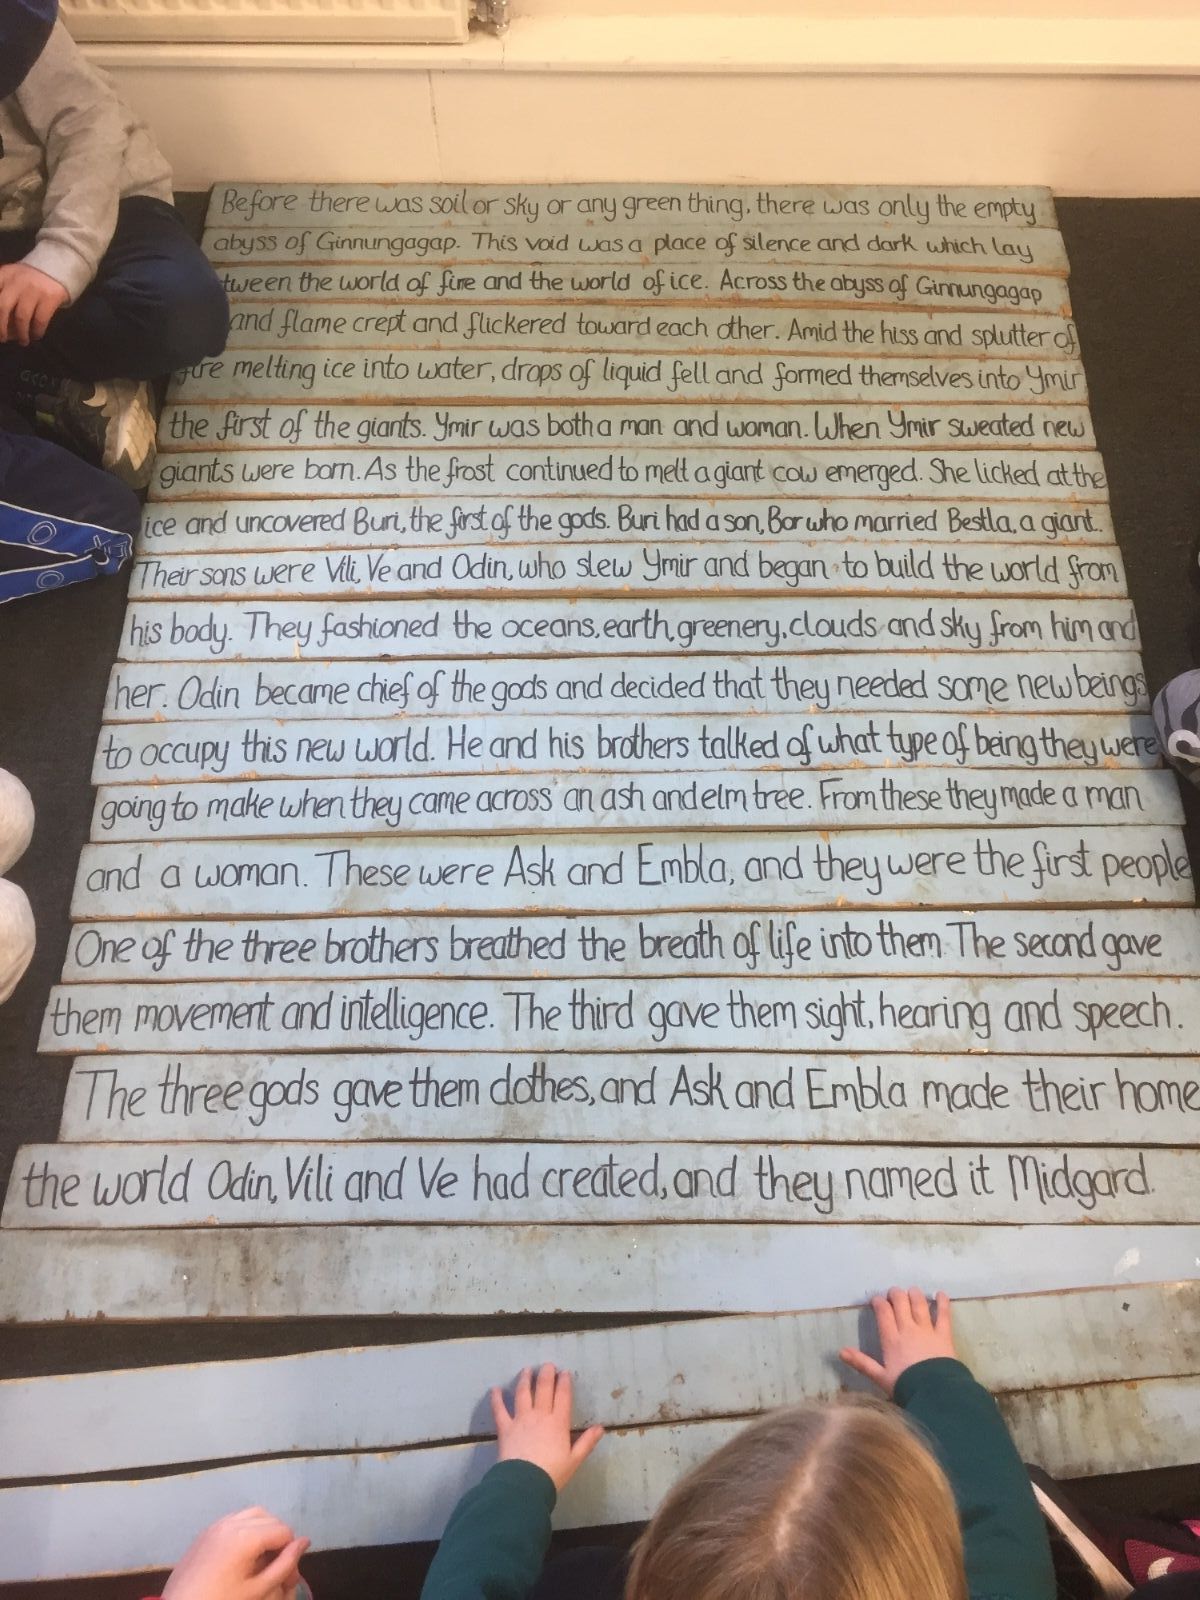 Before there was soil or sky or any green thing, there was only the empty
abyss of Ginnungagap. This void was a place of silence and dark which lay
tween the world of fire and the world of ice. Across the abyss of Ginnungagap
and flame crept and flickered toward each other. Amid the hiss and splutter of
fire melting ice into water, drops of liquid fell and formed themselves into Ymir
the first of the giants. Ymir was both a man and woman. When Ymir sweated new
giants were born. As the frost continued to melt a giant cow emerged. She licked at the
ice and uncovered Buri, the first of the gods. Buri had a son, Bor who married Bestla, a giant.
Their sons were Vili, Ve and Odin, who slew Ymir and began to build the world from
his body. They fashioned the oceans, earth, greenery, clouds and sky from him and
her. Odin became chief of the gods and decided that they needed some new beings
to occupy this new world. He and his brothers talked of what type of being they were
going to make when they came across an ash and elm tree. From these they made a man
and a woman. These were Ask and Embla, and they were the first people
One of the three brothers breathed the breath of life into them. The second gave
them movement and intelligence. The third gave them sight, hearing and speech.
The three gods gave them clothes, and Ask and Embla made their home
the world Odin, Vili and Ve had created, and they named it Midgard.